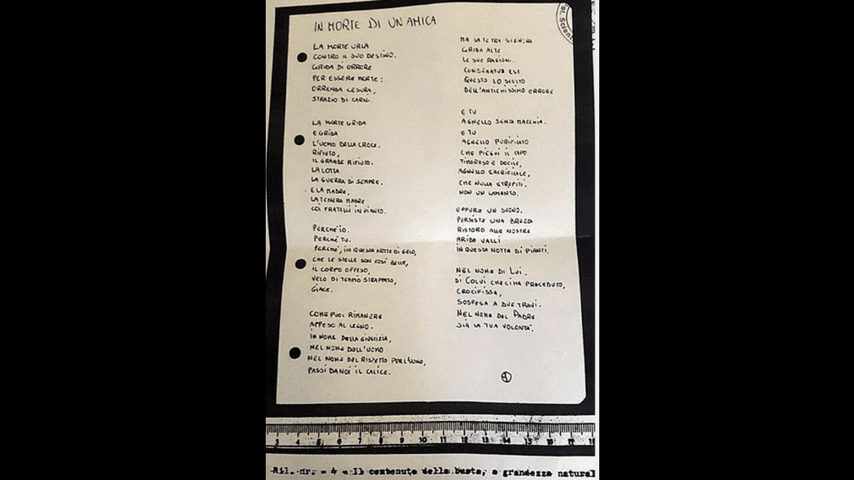 IN MORTE DI UN'AMICA
LA MORTE URLA
CONTRO IL SUO DESTINO.
GRIDA DI ORRORE
PER ESSERE MORTE:
ORRENDA CESURA,
STRAZIO DI CARNI.
LA MORTE GRIDA
E GRIDA
L'UOMO DELLA CROCE.
RIFIUTO,
IL GRANDE RIFIUTO.
LA LOTTA
LA GUERRA DI SEMPRE.
E LA MADRE,
LA TENERA MADRE
COI FRATELLI IN PIANTO.
PERCHÉ IO.
PERCHÉ TU.
PERCHÉ, IN QUESTA NOTTE DI GELO,
CHE LE STELLE SON COSÌ BELLE,
IL CORPO OFFESO,
VELO DI TEMPIO STRAPPATO,
GIACE.
COME PUOI RIMANERE
APPESO AL LEGNO.
IN NOME DELLA GIUSTIZIA,
NEL NOME DELL'UOMO
NEL NOME DEL RISPETTO PER L'UOMO,
PASSI DA NOI IL CALICE.
MA LA TETRA SIGNORA
GRIDA ALTE
LE SUE RAGIONI.
CONSUMATUM EST
QUESTO LO SCLITO
DELL'ANTICHISSIMO ERRORE
E TU
AGNELLO SENZA MACCHIA.
E TU
AGNELLO PURIFICATO
CHE PIEGHI IL CAPO
TIMOROSO E DOCILE,
AGNELLO SACRIFICALE,
CHE NULLA STREPITI,
NON UN LAMENTO.
EPPURE UN SUONO,
PERSISTE UNA BREZZA
RISTORO ALLE NOSTRE
ARIDE VALLI
IN QUESTA NOTTE DI PIANTI.
NEL NOME DI LUI,
DI COLUI CHE CI HA PRECEDUTO,
CROCIFISSA,
SOSPESA A DUE TRAVI.
NEL NOME DEL PADRE
SIA LA TUA VOLONTÀ.
3 4 5 6 7 8 9 10 11 12 13 14 15 16 17 18
Ril. nr. - 4 - Il contenuto della busta, a grandezza natural